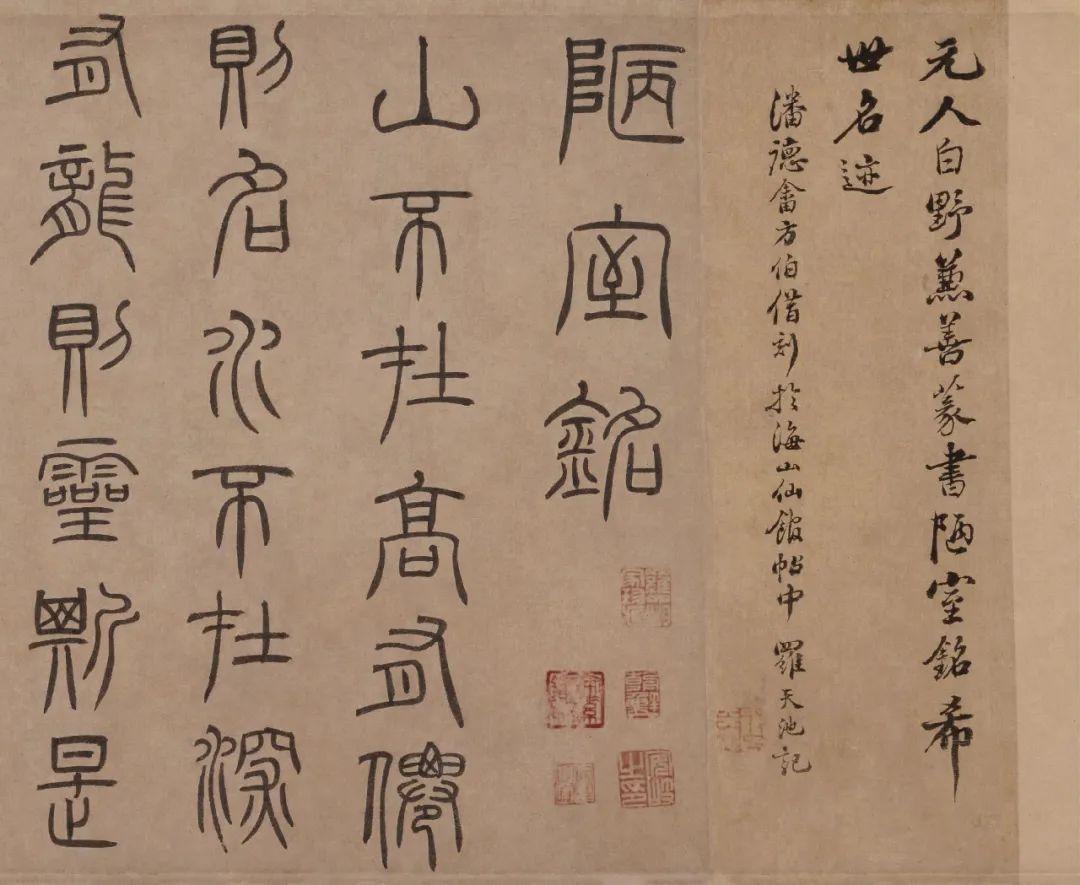 元人白野兼善篆書陋室銘希
世名迹
潘德畬方伯借刻於海山仙館帖中 羅天池記
陋室銘
山不在高有僊
則名水不在深
有龍則靈斯是